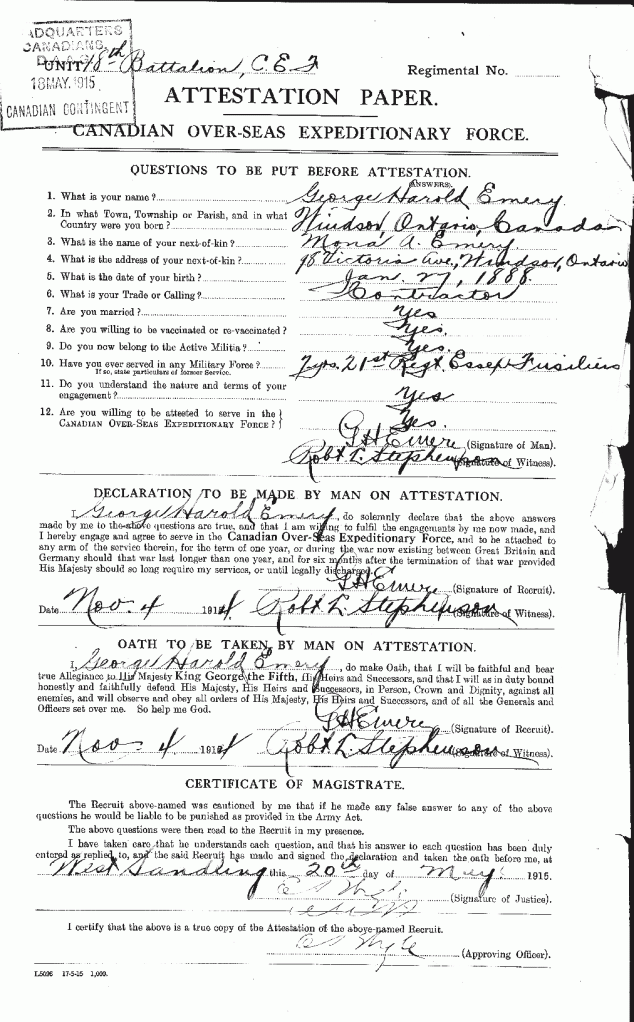 ADQUARTERS
CANADIANS,
UNIT 18th Battalion, C.E.F Regimental No.
18 MAY. 1915
CANADIAN CONTINGENT
ATTESTATION PAPER.
CANADIAN OVER-SEAS EXPEDITIONARY FORCE.
QUESTIONS TO BE PUT BEFORE ATTESTATION.
(ANSWERS).
1. What is your name? George Harold Emery.
2. In what Town, Township or Parish, and in what
Country were you born? Windsor, Ontario, Canada
3. What is the name of your next-of-kin? Mona A. Emery.
4. What is the address of your next-of-kin? 98 Victoria Ave., Windsor, Ontario
5. What is the date of your birth? Jan 27, 1888.
6. What is your Trade or Calling? Contractor
7. Are you married? Yes
8. Are you willing to be vaccinated or re-vaccinated? Yes.
9. Do you now belong to the Active Militia? Yes.
10. Have you ever served in any Military Force? 7 yrs. 21st Regt. Essex Fusiliers
If so, state particulars of former Service.
11. Do you understand the nature and terms of your
engagement? Yes
12. Are you willing to be attested to serve in the
CANADIAN OVER-SEAS EXPEDITIONARY FORCE? Yes.
G H Emere (Signature of Man).
Robt L. Stephenson (Signature of Witness).
DECLARATION TO BE MADE BY MAN ON ATTESTATION.
I, George Harold Emery, do solemnly declare that the above answers
made by me to the above questions are true, and that I am willing to fulfil the engagements by me now made, and
I hereby engage and agree to serve in the Canadian Over-Seas Expeditionary Force, and to be attached to
any arm of the service therein, for the term of one year, or during the war now existing between Great Britain and
Germany should that war last longer than one year, and for six months after the termination of that war provided
His Majesty should so long require my services, or until legally discharged.
G H Emere (Signature of Recruit).
Date Nov. 4 1914 Robt L. Stephenson (Signature of Witness).
OATH TO BE TAKEN BY MAN ON ATTESTATION.
I, George Harold Emery, do make Oath, that I will be faithful and bear
true Allegiance to His Majesty King George the Fifth, His Heirs and Successors, and that I will as in duty bound
honestly and faithfully defend His Majesty, His Heirs and Successors, in Person, Crown and Dignity, against all
enemies, and will observe and obey all orders of His Majesty, His Heirs and Successors, and of all the Generals and
Officers set over me. So help me God.
G H Emere (Signature of Recruit).
Date Nov. 4 1914 Robt L. Stephenson (Signature of Witness).
CERTIFICATE OF MAGISTRATE.
The Recruit above-named was cautioned by me that if he made any false answer to any of the above
questions he would be liable to be punished as provided in the Army Act.
The above questions were then read to the Recruit in my presence.
I have taken care that he understands each question, and that his answer to each question has been duly
entered as replied to, and the said Recruit has made and signed the declaration and taken the oath before me, at
West Sandling this 20th day of May. 1915.
(Signature of Justice).
I certify that the above is a true copy of the Attestation of the above-named Recruit.
(Approving Officer).
L.5096 17-5-15 1,000.